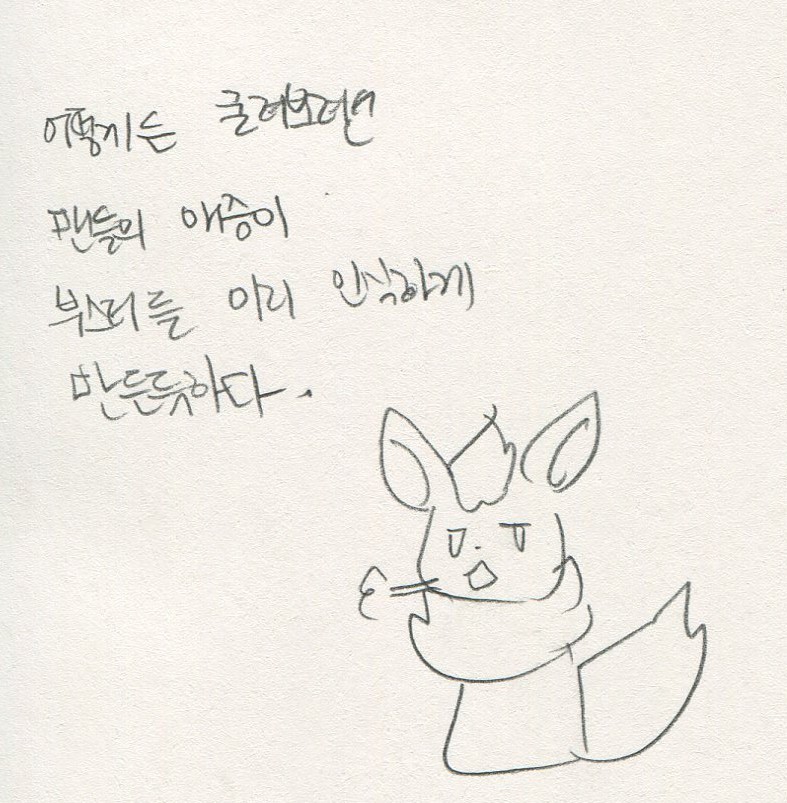 어떻게든 굴려보려던
팬들의 애증이
부스터를 이리 인식하게
만든듯하다.